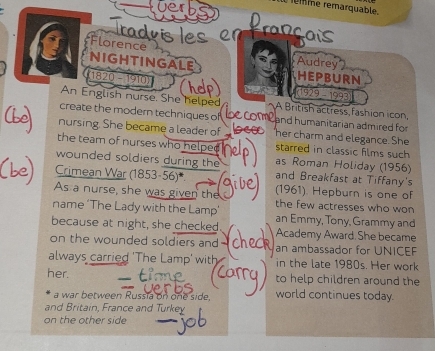 (verbs)
femme remarquable.
Traduis les en français
Florence
NIGHTINGALE
(1820 – 1910)
(help)
An English nurse. She helped
create the modern techniques of
(be)
nursing. She became a leader of
(become)
the team of nurses who helped
(help)
wounded soldiers during the
(be)
Crimean War (1853-56)*.
As a nurse, she was given the
(give)
name 'The Lady with the Lamp'
because at night, she checked
on the wounded soldiers and
(check)
always carried 'The Lamp' with
(carry)
her.
= time
= verbs
* a war between Russia on one side,
and Britain, France and Turkey
on the other side
— job
Audrey
HEPBURN
(1929 – 1993)
A British actress, fashion icon,
and humanitarian admired for
her charm and elegance. She
starred in classic films such
as Roman Holiday (1956)
and Breakfast at Tiffany's
(1961). Hepburn is one of
the few actresses who won
an Emmy, Tony, Grammy and
Academy Award. She became
an ambassador for UNICEF
in the late 1980s. Her work
to help children around the
world continues today.